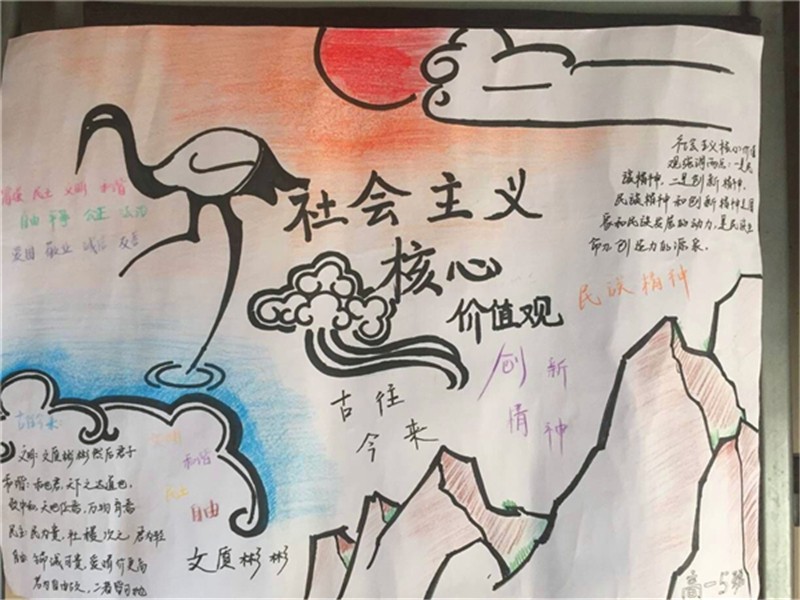 社会主义
核心
价值观
社会主义核心价值
观强调两点：一是民
族精神，二是创新精神，
民族精神和创新精神是国
家和民族发展的动力，是民族生
命力创造力的源泉.
富强 民主 文明 和谐
自由 平等 公正 法治
爱国 敬业 诚信 友善
民族精神
创新
精神
古往
今来
古往今来:
文明 文质彬彬然后君子
和谐：和也者，天下之达道也，
致中和，天地位焉，万物育焉
民主：民为贵，社稷次之 君为轻
自由
文明
和谐
民主
自由
文质彬彬
高一5班